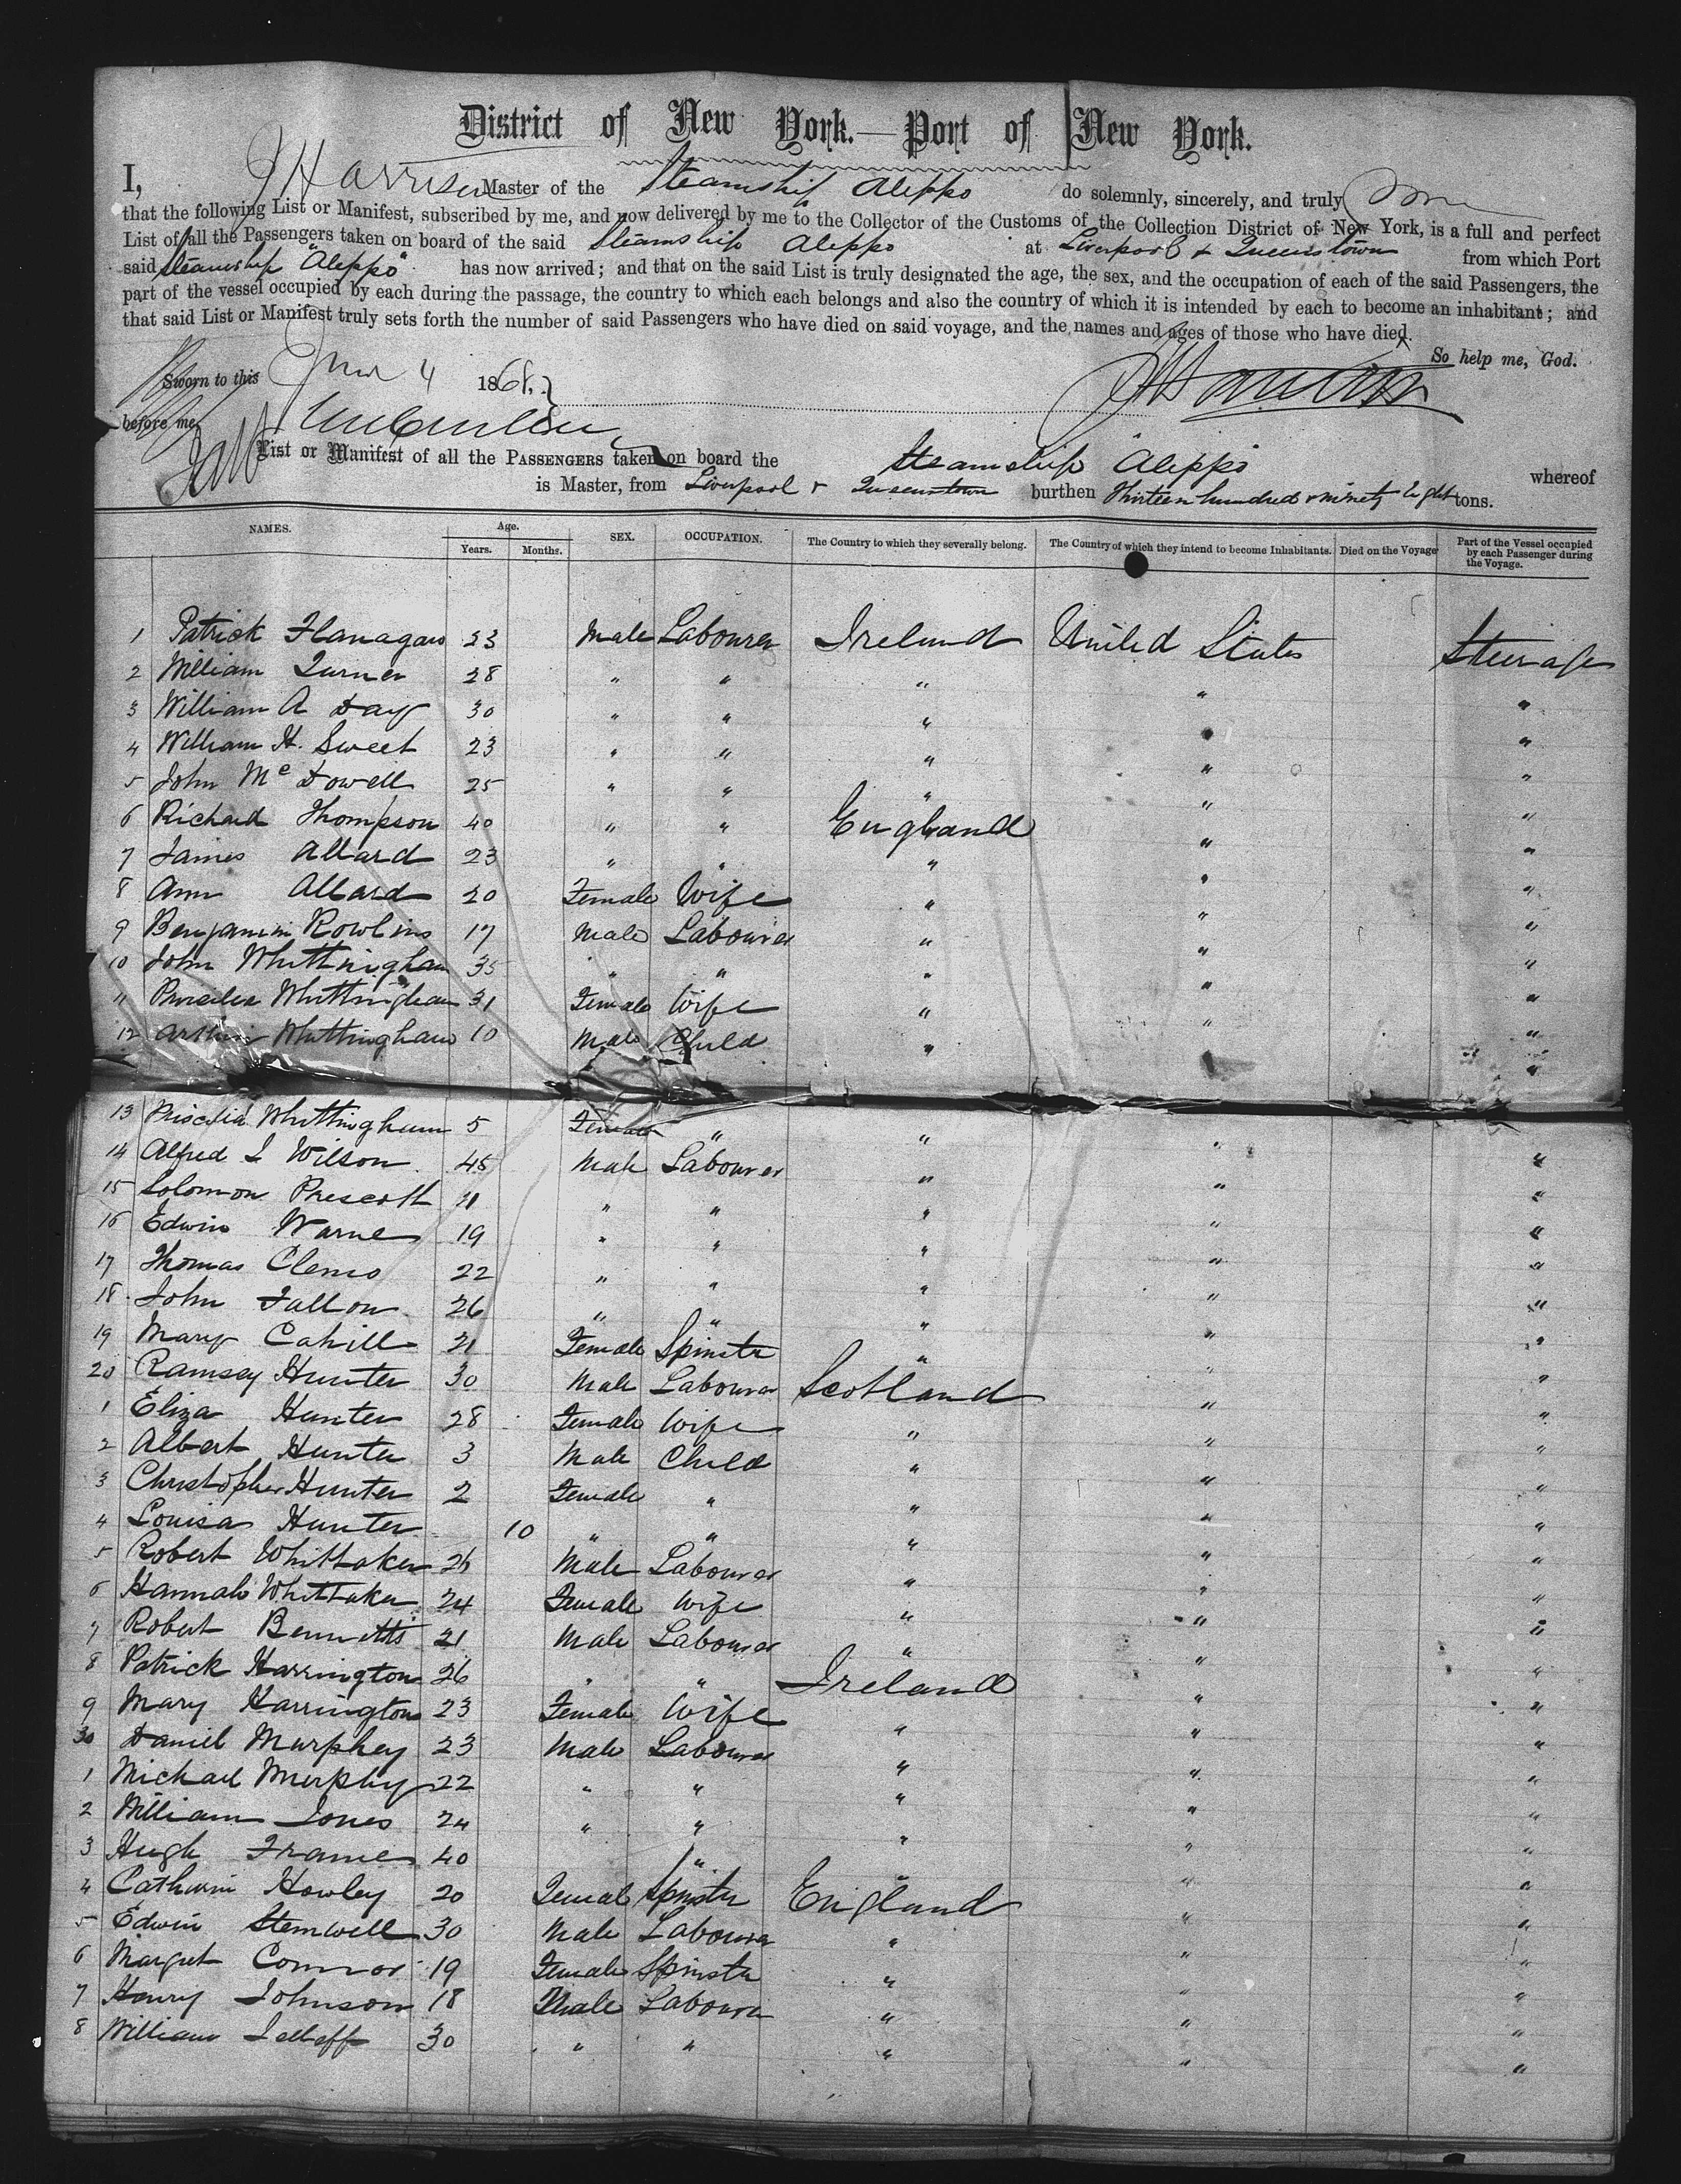 District of New York.—Port of New York.
I, J Harrison Master of the Steamship Aleppo do solemnly, sincerely, and truly
that the following List or Manifest, subscribed by me, and now delivered by me to the Collector of the Customs of the Collection District of New York, is a full and perfect
List of all the Passengers taken on board of the said Steamship Aleppo at Liverpool & Queenstown from which Port
said Steamship "Aleppo" has now arrived; and that on the said List is truly designated the age, the sex, and the occupation of each of the said Passengers, the
part of the vessel occupied by each during the passage, the country to which each belongs and also the country of which it is intended by each to become an inhabitant; and
that said List or Manifest truly sets forth the number of said Passengers who have died on said voyage, and the names and ages of those who have died.
So help me, God.
Sworn to this 4 1868,
before me
List or Manifest of all the PASSENGERS taken on board the Steamship Aleppo whereof
is Master, from Liverpool & Queenstown burthen Thirteen hundred & ninety Eight tons.
NAMES. Age. Years. Months. SEX. OCCUPATION. The Country to which they severally belong. The Country of which they intend to become Inhabitants. Died on the Voyage Part of the Vessel occupied by each Passenger during the Voyage.
1 Patrick Flanagan 23 Male Labourer Ireland United States Steerage
2 William Turner 28 " " " " "
3 William A Day 30 " " " " "
4 William H. Sweet 23 " " " " "
5 John Mc Dowell 25 " " " " "
6 Richard Thompson 40 " " England " "
7 James Allard 23 " " " " "
8 Ann Allard 20 Female Wife " " "
9 Benjamin Rowlins 17 Male Labourer " " "
10 John Whittingham 35 " " " " "
11 Priscilla Whittingham 31 Female Wife " " "
12 Arthur Whittingham 10 Male Child " " "
13 Priscilla Whittingham 5 Female " " " "
14 Alfred I Wilson 45 Male Labourer " " "
15 Solomon Prescott " " " " "
16 Edwin Warne 19 " " " " "
17 Thomas Clemo 22 " " " " "
18 John Fallon 26 " " " " "
19 Mary Cahill 21 Female Spinster " " "
20 Ramsey Hunter 30 Male Labourer Scotland " "
1 Eliza Hunter 28 Female Wife " " "
2 Albert Hunter 3 Male Child " " "
3 Christopher Hunter 2 Female " " " "
4 Louisa Hunter 10 " " " " "
5 Robert Whittaker 26 Male Labourer " " "
6 Hannah Whittaker 24 Female Wife " " "
7 Robert Bennetts 21 Male Labourer " " "
8 Patrick Harrington 26 " " Ireland " "
9 Mary Harrington 23 Female Wife " " "
30 Daniel Murphey 23 Male Labourer " " "
1 Michael Murphy 22 " " " " "
2 William Jones 24 " " " " "
3 Hugh Frame 40 " " " "
4 Catherin Howley 20 Female Spinster England " "
5 Edwin Stemwell 30 Male Labourer " " "
6 Margret Connor 19 Female Spinster " " "
7 Henry Johnson 18 Male Labourer " " "
8 William 30 " " " " "